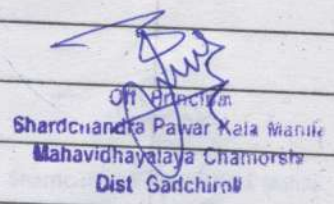 Off Principal
Shardchandra Pawar Kala
Mahavidhayalaya Chamorshi
Dist Gadchiroli